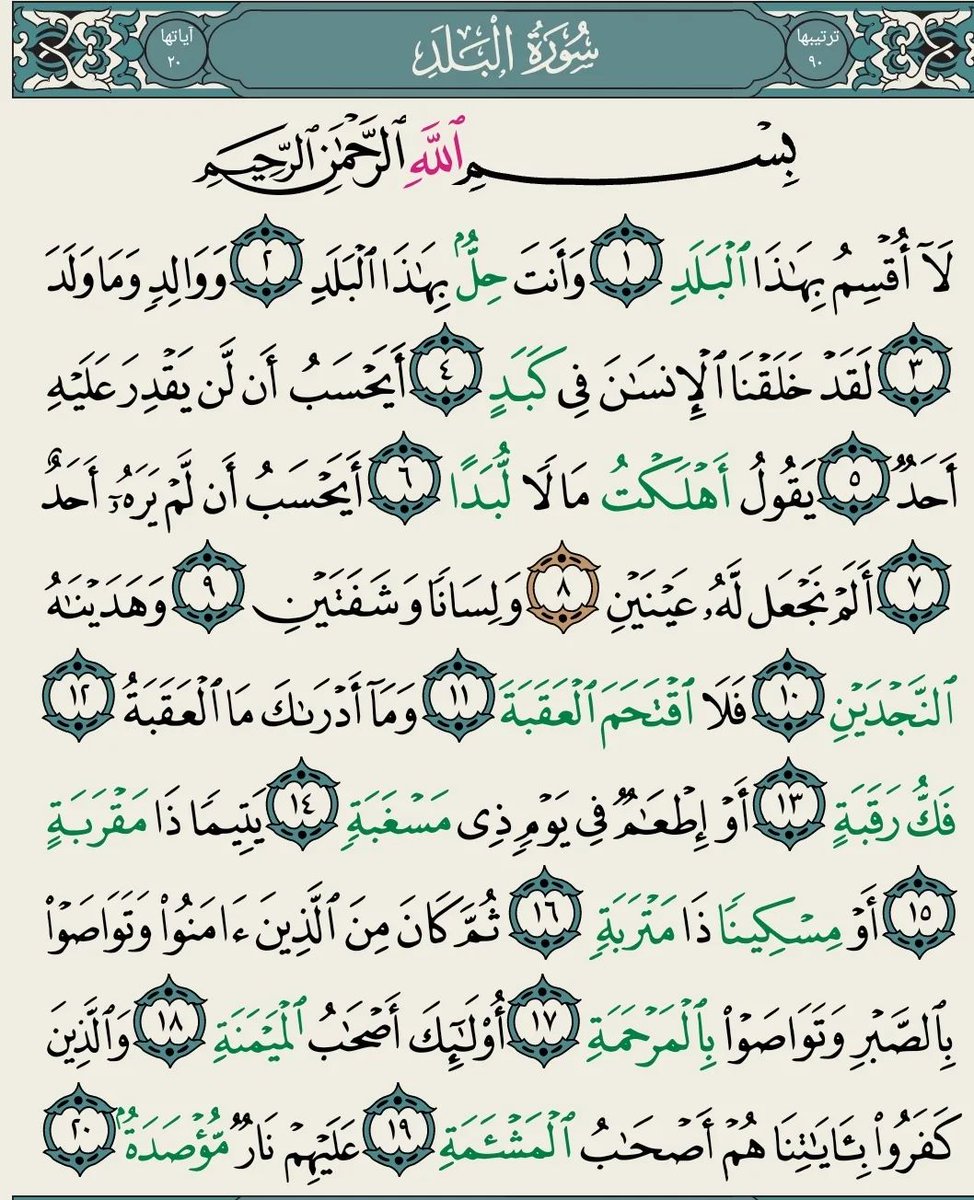 ترتيبها ٩٠
سُورَةُ الْبَلَدِ
آياتها ٢٠
بِسْمِ ٱللَّهِ ٱلرَّحْمَٰنِ ٱلرَّحِيمِ
لَآ أُقْسِمُ بِهَٰذَا ٱلْبَلَدِ ١ وَأَنتَ حِلٌّۢ بِهَٰذَا ٱلْبَلَدِ ٢ وَوَالِدٍ وَمَا وَلَدَ
٣ لَقَدْ خَلَقْنَا ٱلْإِنسَٰنَ فِى كَبَدٍ ٤ أَيَحْسَبُ أَن لَّن يَقْدِرَ عَلَيْهِ
أَحَدٌ ٥ يَقُولُ أَهْلَكْتُ مَالًا لُّبَدًا ٦ أَيَحْسَبُ أَن لَّمْ يَرَهُۥٓ أَحَدٌ
٧ أَلَمْ نَجْعَل لَّهُۥ عَيْنَيْنِ ٨ وَلِسَانًا وَشَفَتَيْنِ ٩ وَهَدَيْنَٰهُ
ٱلنَّجْدَيْنِ ١٠ فَلَا ٱقْتَحَمَ ٱلْعَقَبَةَ ١١ وَمَآ أَدْرَىٰكَ مَا ٱلْعَقَبَةُ ١٢
فَكُّ رَقَبَةٍ ١٣ أَوْ إِطْعَٰمٌ فِى يَوْمٍ ذِى مَسْغَبَةٍ ١٤ يَتِيمًا ذَا مَقْرَبَةٍ
١٥ أَوْ مِسْكِينًا ذَا مَتْرَبَةٍ ١٦ ثُمَّ كَانَ مِنَ ٱلَّذِينَ ءَامَنُوا۟ وَتَوَاصَوْا۟
بِٱلصَّبْرِ وَتَوَاصَوْا۟ بِٱلْمَرْحَمَةِ ١٧ أُو۟لَٰٓئِكَ أَصْحَٰبُ ٱلْمَيْمَنَةِ ١٨ وَٱلَّذِينَ
كَفَرُوا۟ بِـَٔايَٰتِنَا هُمْ أَصْحَٰبُ ٱلْمَشْـَٔمَةِ ١٩ عَلَيْهِمْ نَارٌ مُّؤْصَدَةٌۢ ٢٠